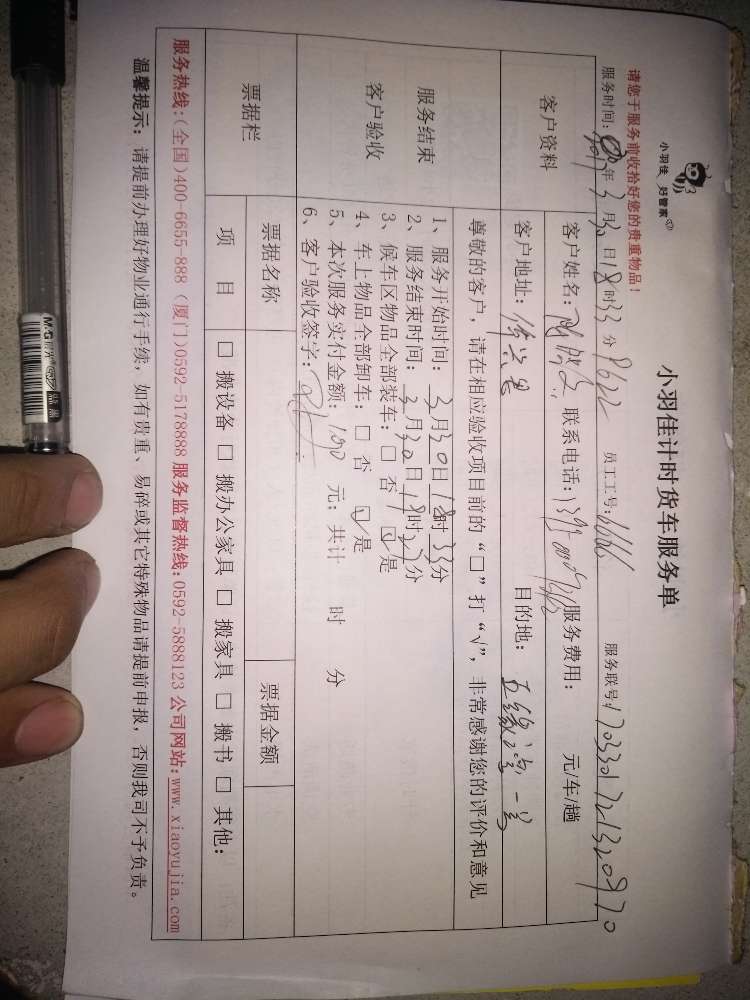 小羽佳 好管家
小羽佳计时货车服务单
请您于服务前收拾好您的贵重物品！
服务时间：2017年3月30日18时33分 员工工号：6666 服务联号：1703301721320970
客户资料
客户姓名： 联系电话： 服务费用： 元/车/趟
客户地址： 目的地：五缘湾一里
服务结束
客户验收
尊敬的客户，请在相应验收项目前的“□”打“√”，非常感谢您的评价和意见
1、服务开始时间：3月30日18时33分
2、服务结束时间：3月30日19时27分
3、候车区物品全部装车：□ 否 ☑ 是
4、车上物品全部卸车：□ 否 ☑ 是
5、本次服务实付金额：100 元；共计 时 分
6、客户验收签字：
票据栏
票据名称 票据金额
项 目 □ 搬设备 □ 搬办公家具 □ 搬家具 □ 搬书 □ 其他：
服务热线：(全国)400-6655-888 (厦门)0592-5178888 服务监督热线：0592-5888123 公司网站：www.xiaoyujia.com
温馨提示：请提前办理好物业通行手续，如有贵重、易碎或其它特殊物品请提前申报，否则我司不予负责。
M&G